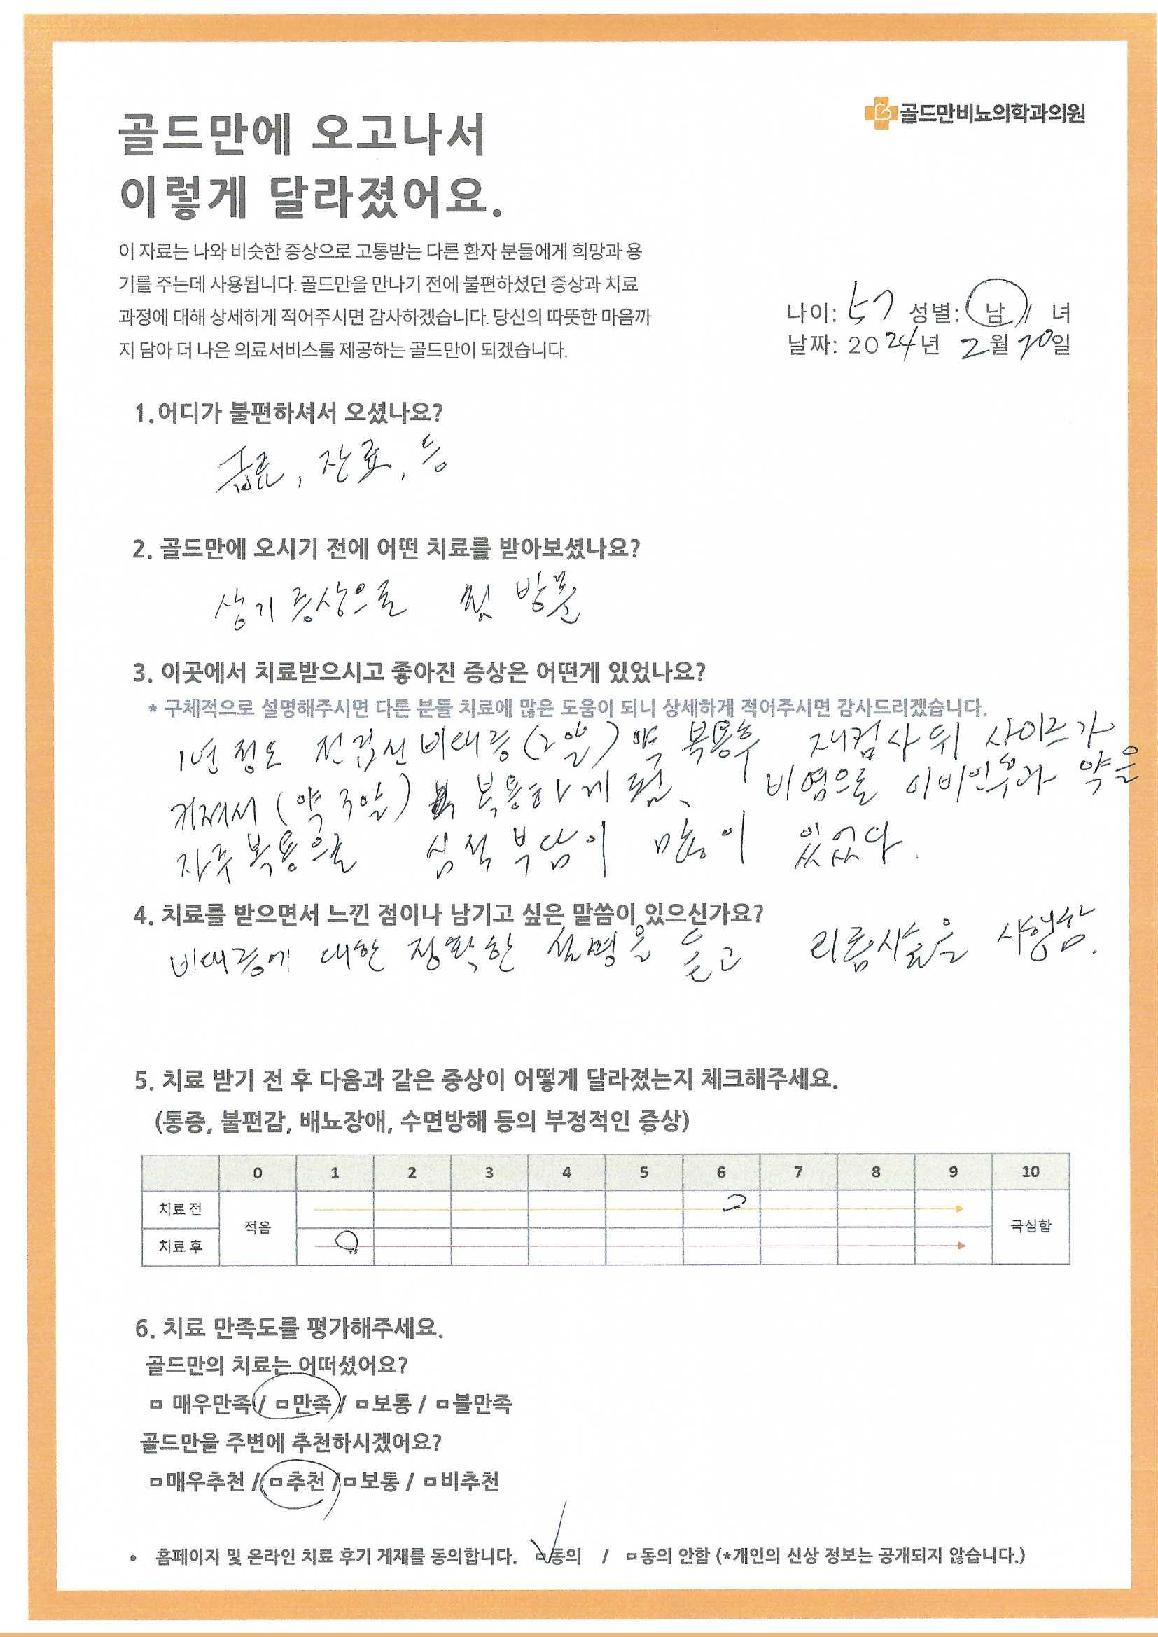 골드만비뇨의학과의원
골드만에 오고나서
이렇게 달라졌어요.
이 자료는 나와 비슷한 증상으로 고통받는 다른 환자 분들에게 희망과 용
기를 주는데 사용됩니다. 골드만을 만나기 전에 불편하셨던 증상과 치료
과정에 대해 상세하게 적어주시면 감사하겠습니다. 당신의 따뜻한 마음까
지 담아 더 나은 의료서비스를 제공하는 골드만이 되겠습니다.
나이: 57 성별: 남 / 녀
날짜: 2024년 2월 20일
1. 어디가 불편하셔서 오셨나요?
급뇨, 잔뇨, 등
2. 골드만에 오시기 전에 어떤 치료를 받아보셨나요?
상기 증상으로 첫 방문
3. 이곳에서 치료받으시고 좋아진 증상은 어떤게 있었나요?
* 구체적으로 설명해주시면 다른 분들 치료에 많은 도움이 되니 상세하게 적어주시면 감사드리겠습니다.
1년 정도 전립선 비대증(2알) 약 복용후 재검사 뒤 사이즈가
커져서 (약 3알) 복용하게 됨. 비염으로 이비인후과 약을
자주 복용으로 심적 부담이 많이 있었다.
4. 치료를 받으면서 느낀 점이나 남기고 싶은 말씀이 있으신가요?
비대증에 대한 정확한 설명을 듣고 리줌시술을 시행함.
5. 치료 받기 전 후 다음과 같은 증상이 어떻게 달라졌는지 체크해주세요.
(통증, 불편감, 배뇨장애, 수면방해 등의 부정적인 증상)
0 1 2 3 4 5 6 7 8 9 10
치료 전
적음 극심함
치료 후
6. 치료 만족도를 평가해주세요.
골드만의 치료는 어떠셨어요?
□ 매우만족 / □ 만족 / □ 보통 / □ 불만족
골드만을 주변에 추천하시겠어요?
□ 매우추천 / □ 추천 / □ 보통 / □ 비추천
• 홈페이지 및 온라인 치료 후기 게재를 동의합니다. □ 동의 / □ 동의 안함 (*개인의 신상 정보는 공개되지 않습니다.)